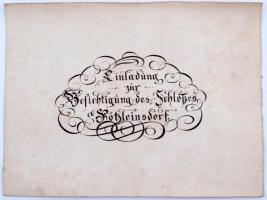 Einladung
zur
Besichtigung des Schloßes
Pötzleinsdorf.